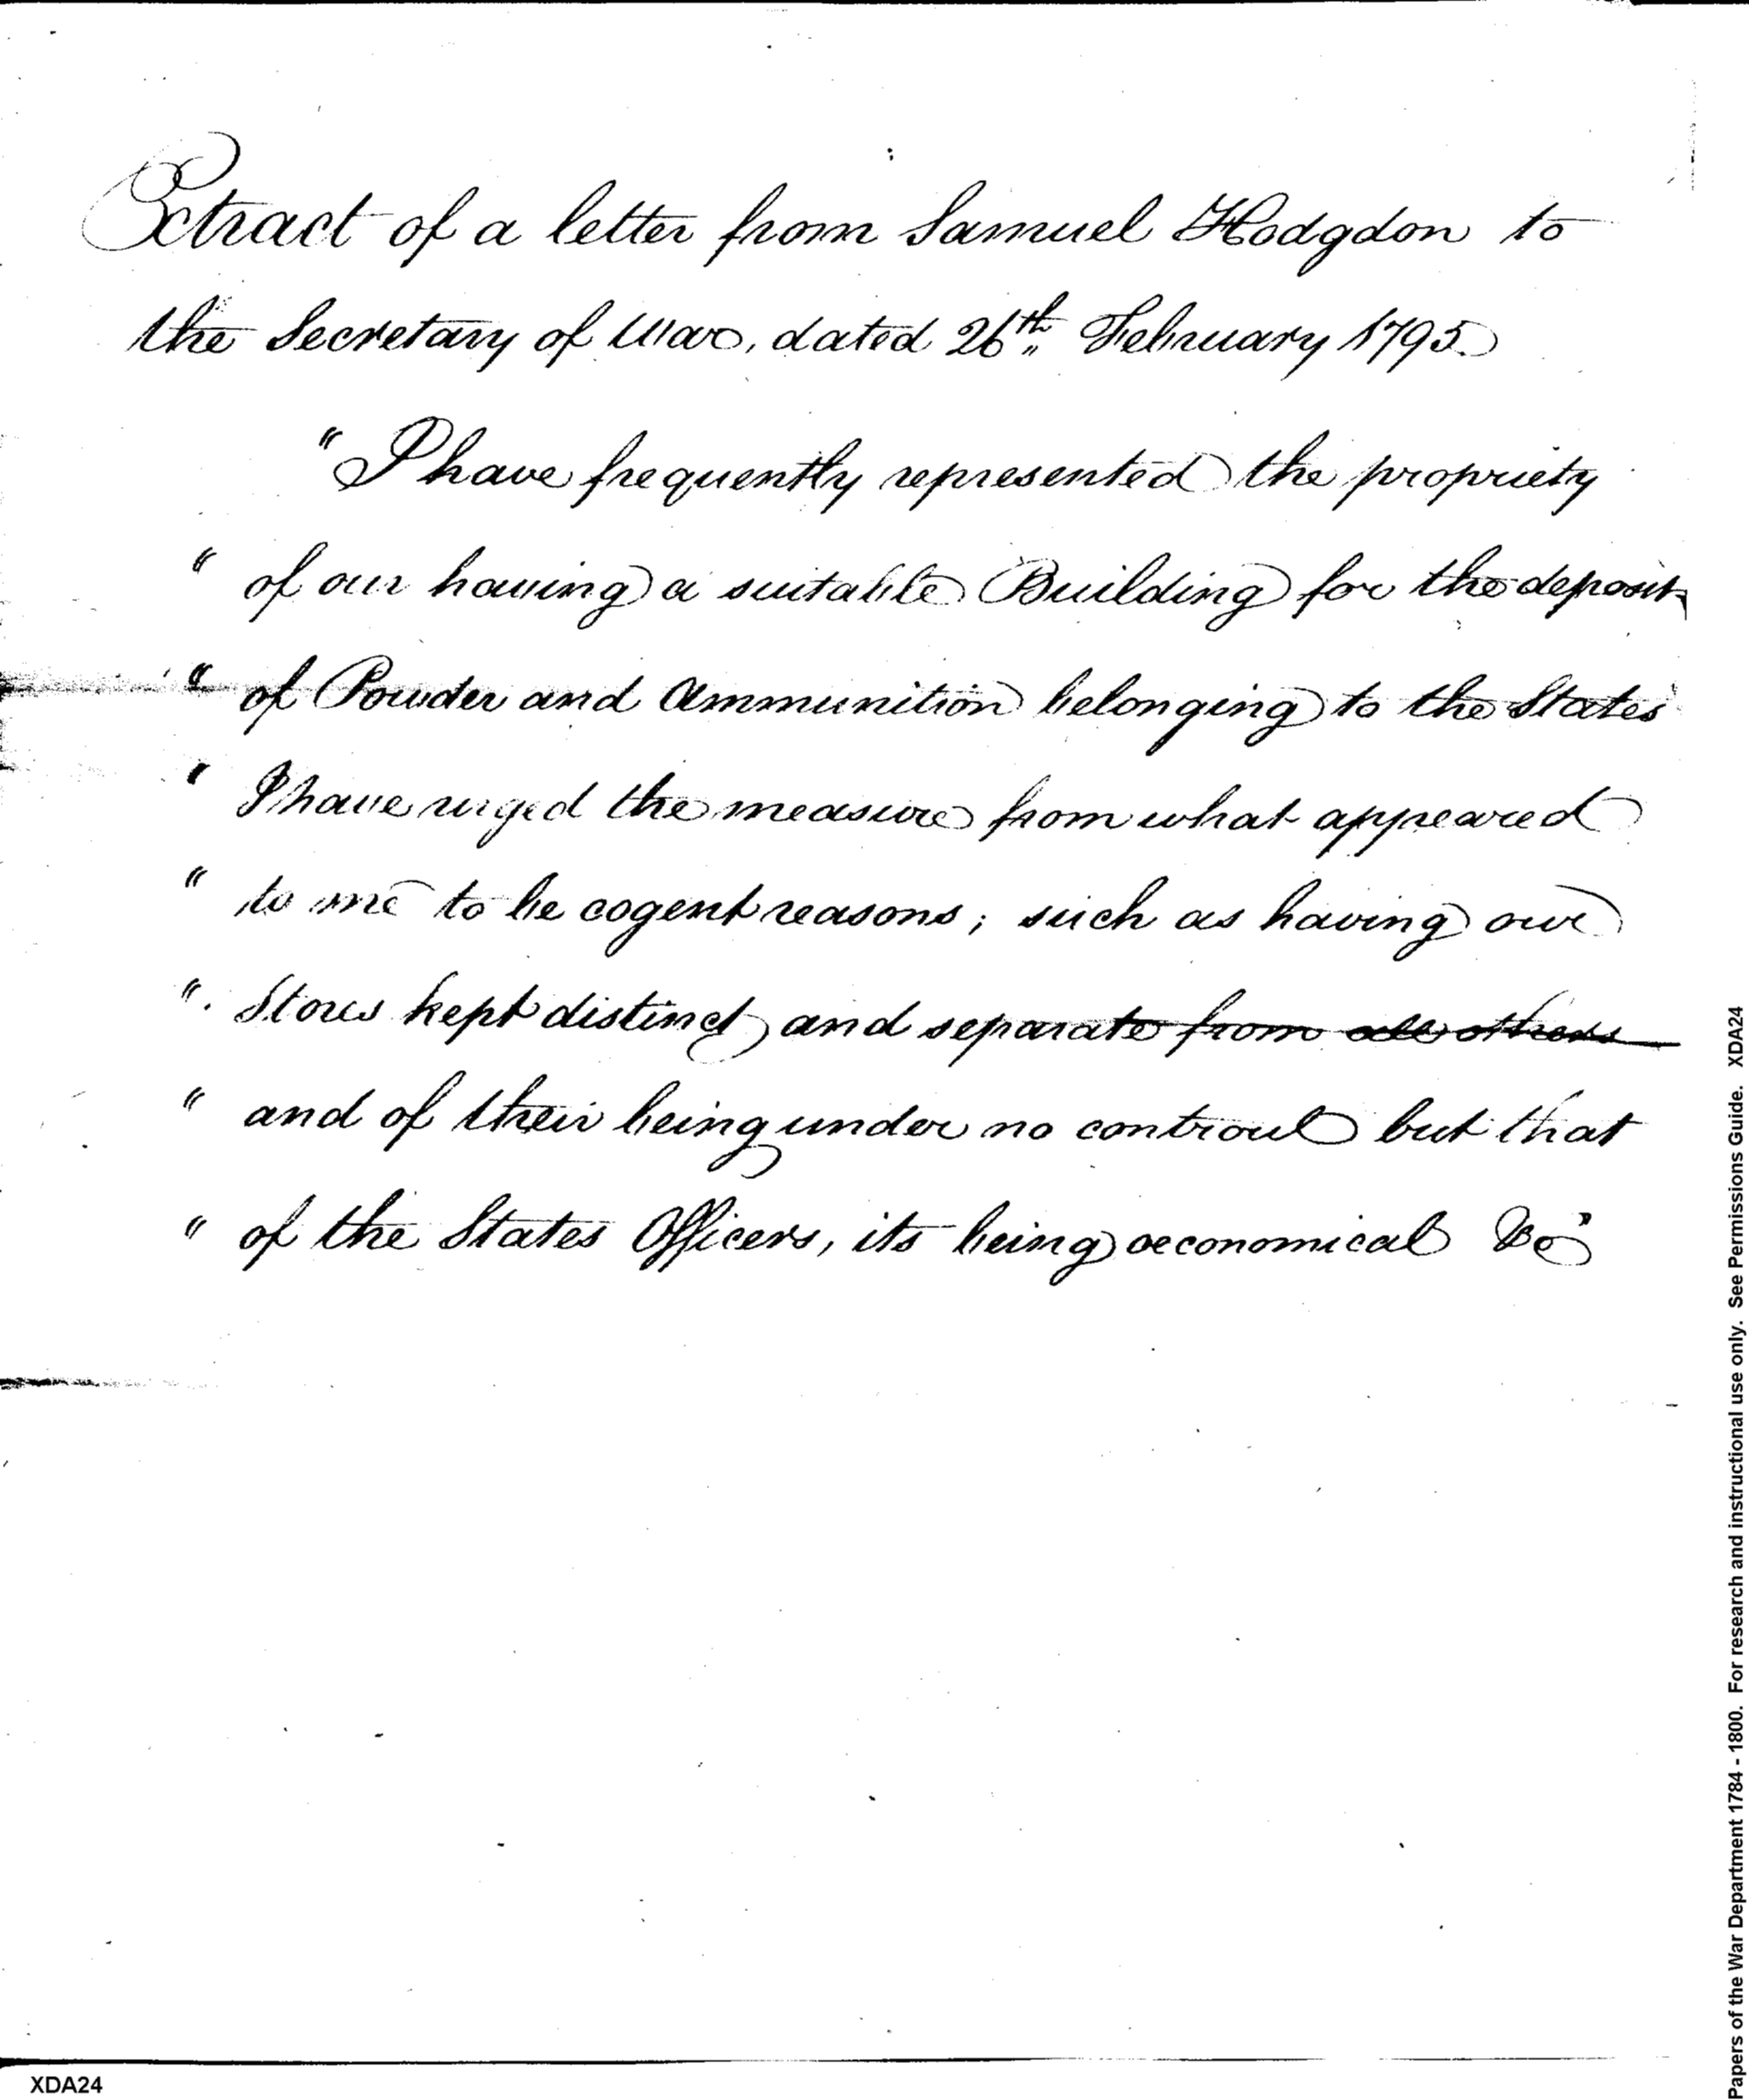 Extract of a letter from Samuel Hodgdon to
the Secretary of War, dated 26th February 1795.
"I have frequently represented the propriety
" of our having a suitable Building for the deposit
" of Powder and Ammunition belonging to the States
" I have urged the measure from what appeared
" to me to be cogent reasons; such as having our
" Stores kept distinct, and separate from all others
" and of their being under no controul but that
" of the States Officers, its being œconomical &c"
Papers of the War Department 1784 - 1800. For research and instructional use only. See Permissions Guide. XDA24
XDA24